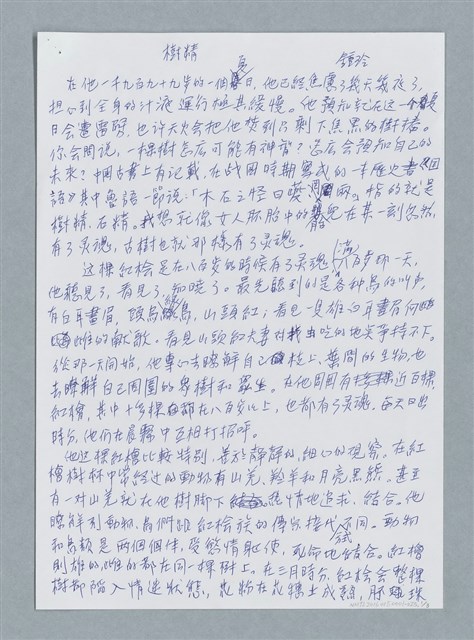 樹精
鍾玲
在他一千九百九十九歲的一個夏日,他已經焦慮了幾天幾夜了,
担心到全身的汁液運行極其緩慢。他預知記在這一個夏
日會遭雷劈,也許天火會把他焚到只剩下焦黑的樹樁。
你会問說,一棵樹怎麽可能有神智?怎么会預知自己的
未來?中國古書上有記載,在战国時期寫成的一本歷史書《国
語》其中魯語一節說:「木石之怪曰夔、罔兩」。指的就是
樹精、石精。我想就像女人胚胎中的胎兒在某一刻忽然
有了灵魂,古樹也就那樣有了灵魂。
這棵紅桧是在八百歲的時候有了灵魂。滿八百歲那一天,
他聽見了,看見了,知曉了。最先聽到的是各種鳥的叫声,
有白耳畫眉,頭烏線鳥,山頭紅;看見一隻雄白耳畫眉向
雌的献歌。看見山頭紅夫妻对找虫吃的地点爭持不下。
從那一天開始,他專心去瞭解自己枝上、葉間的生物,也
去瞭解自己周圍的眾樹和眾生。在他周圍有近百棵
紅檜,其中十多棵都在八百岁以上,也都有了灵魂,每天日出
時分,他們在晨霧中互相打招呼。
他这棵紅檜比較特別,善於靜靜的、細心的观察。在紅
檜樹林中常经过的動物有山羌、羚羊和月亮黑熊。甚至
有一对山羌就在他樹脚下熱情地追求、結合。他
瞭解到動物、鳥們跟紅檜族的傳宗接代不同。動物
和鳥類是兩個個体,受慾情驱使,玩命式地結合。紅檜
則雄的、雌的都在同一棵樹上。在三月時分,紅桧会整棵
樹都陷入情迷狀態,花粉在花穗上成熟,胚珠